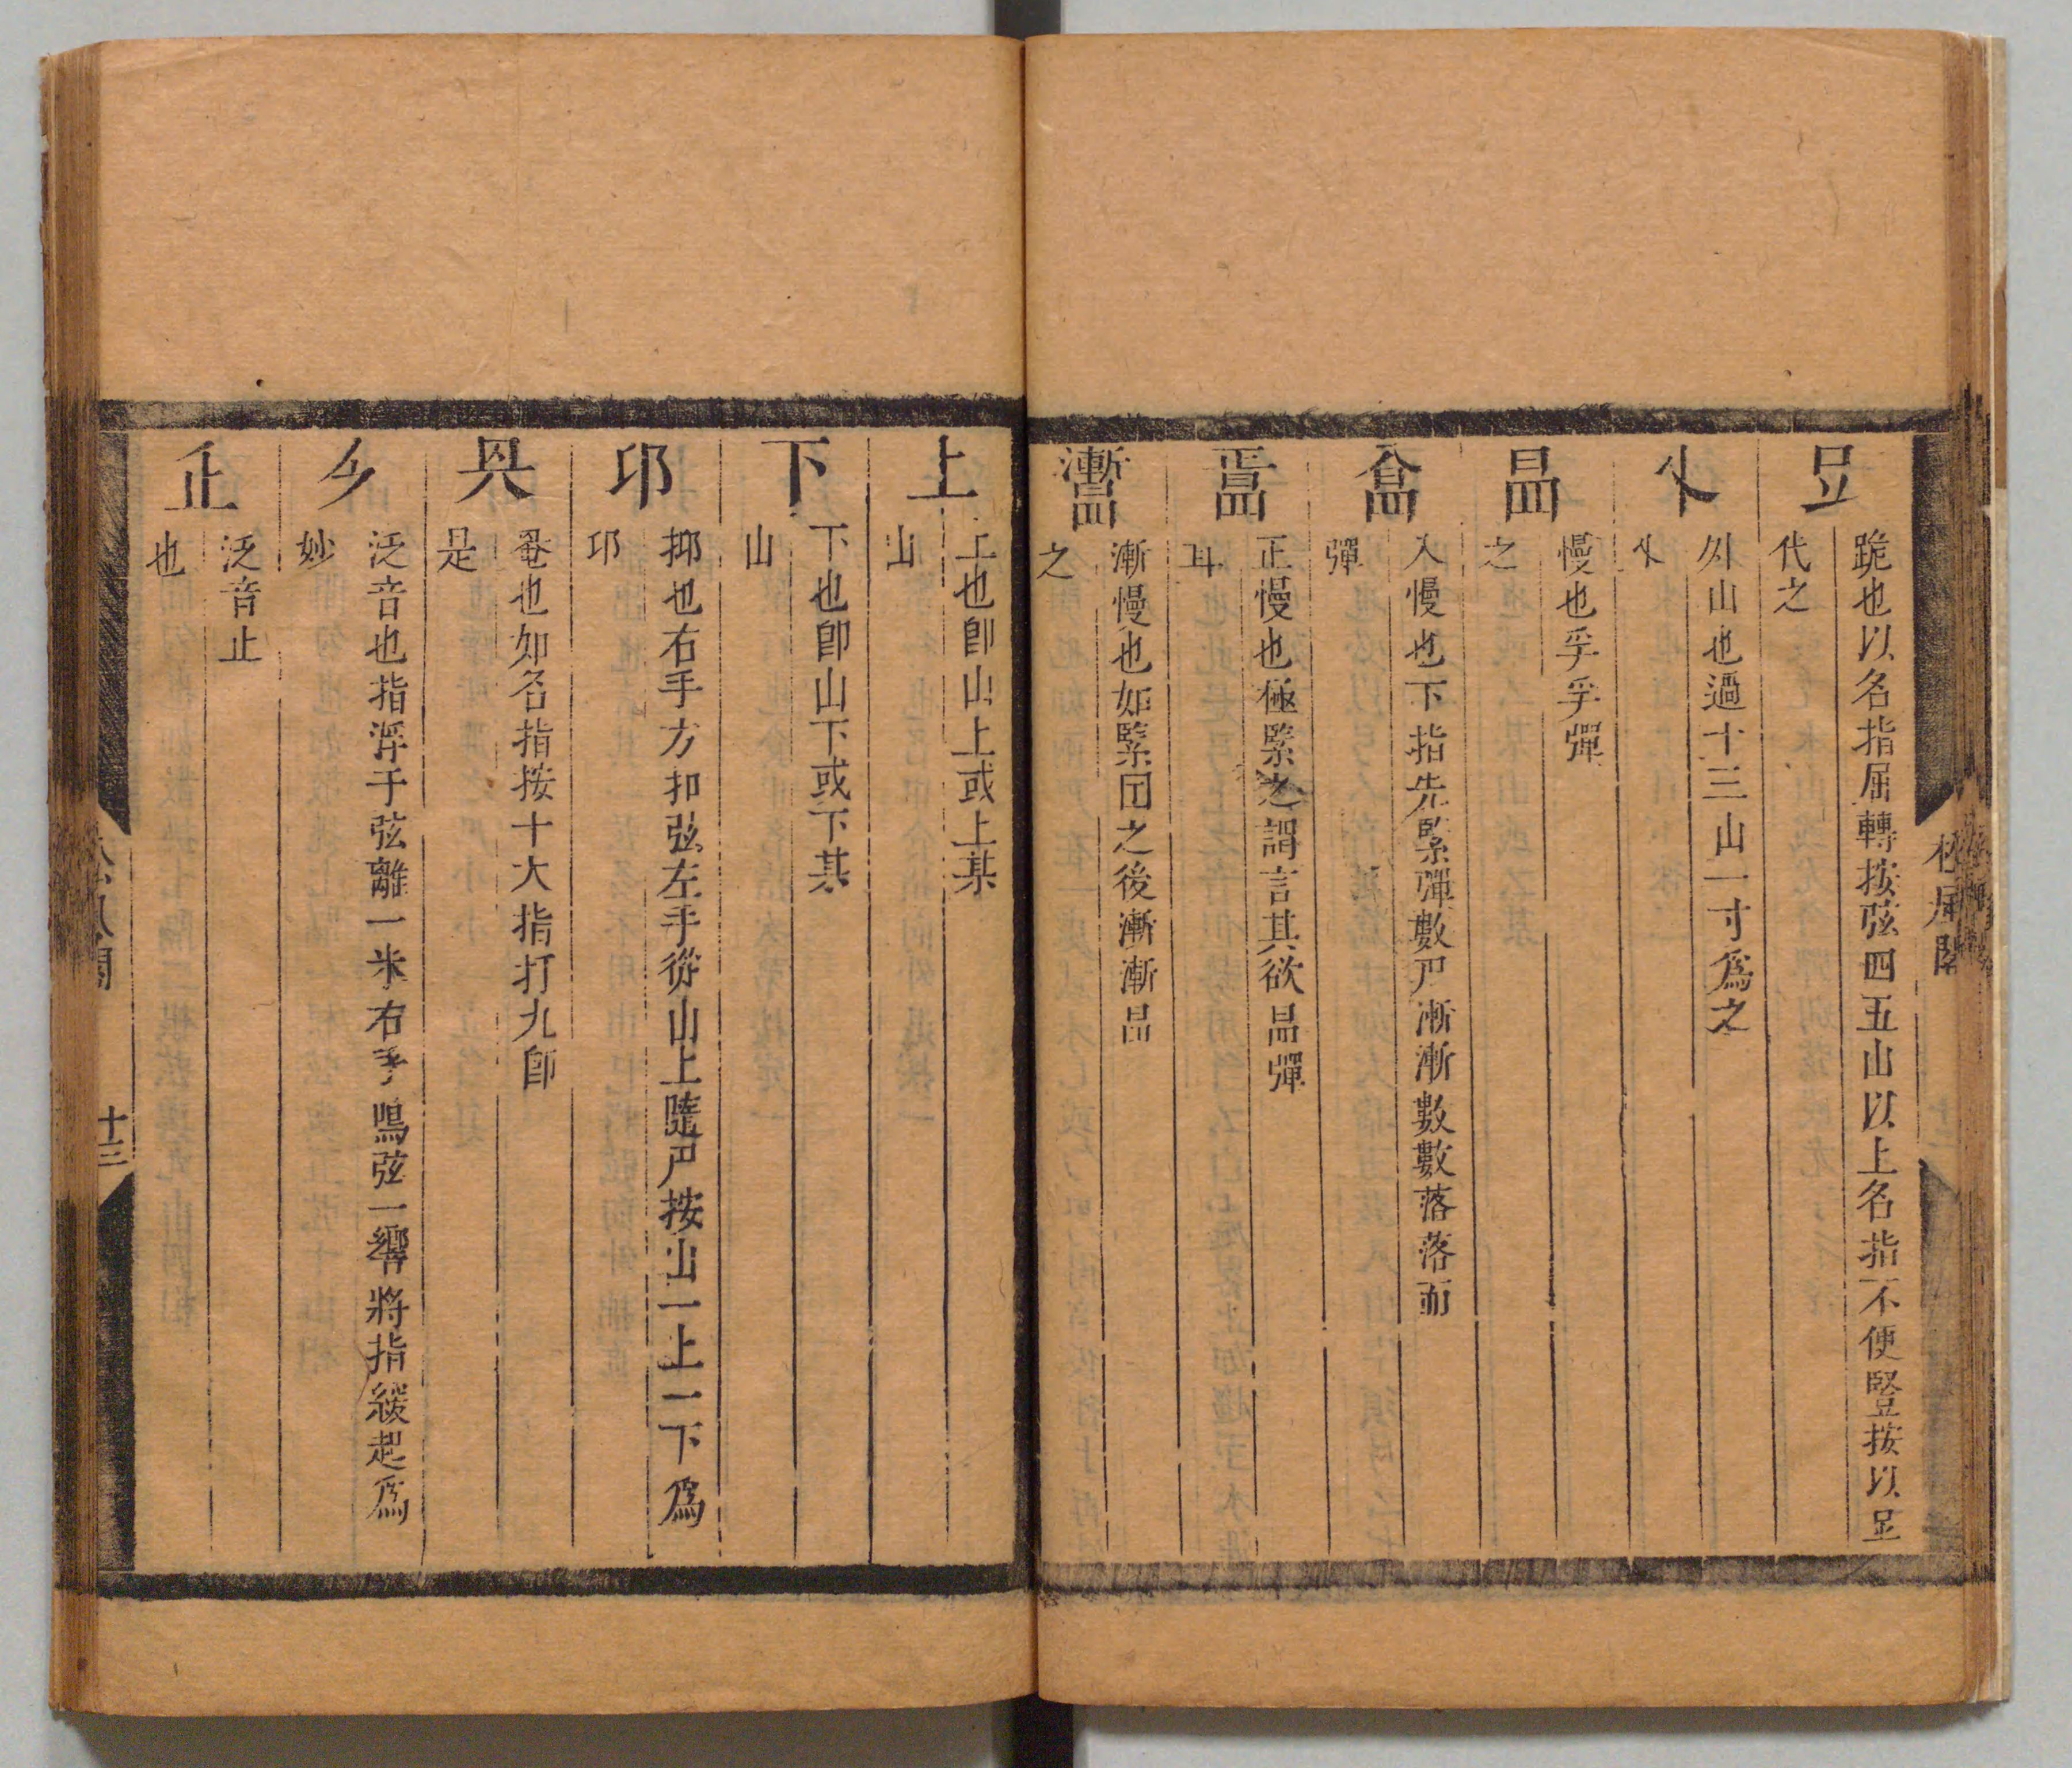 跪也以名指屈轉按弦四五山以上名指不便竪按以
代之
外山也過十三山一寸爲之
慢也乎乎彈
之
入慢也下指先緊彈數尸漸漸數數落落而
彈
正慢也極緊之謂言其欲昷彈
耳
漸慢也如緊囝之後漸漸昷
之
上
上也卽山上或上某
山
下
下也卽山下或下某
山
卭
抑也右手方抑弦左手從山上隨尸按山一上一下爲
卭
罨也如名指按十大指打九卽
是
泛音也指浮于弦離一米右手鳴弦一響將指緩起爲
妙
泛音止
也
松風閣
十三